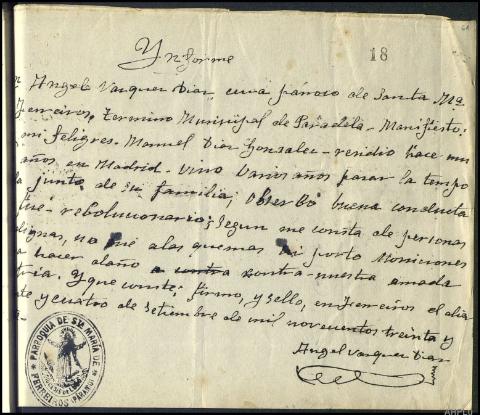 Ynforme
18
Angel Vasquez Diaz cura párroco de Santa Mª
Ferreiros, termino Municipal de Paradela - Manifiesto:
mi feligres. Manuel Diaz Gonzalez - residio hace mu
años en Madrid - vino varios años pasar la tempo
junto de su familia; Oberbó buena conducta
fué - rebolucionario; segun me consta de personas
dignas, no fué a las quemas ni porto Moniciones
a hacer daño a contra contra - nuestra amada
tria. Y que conste; firmo, y sello, en Ferreiros el dia
te y cuatro de setiembre de mil novecientos treinta y
Angel Vasquez Diaz
PARROQUIA DE Sta MARÍA DE
FERREIROS (PÁRAMO)